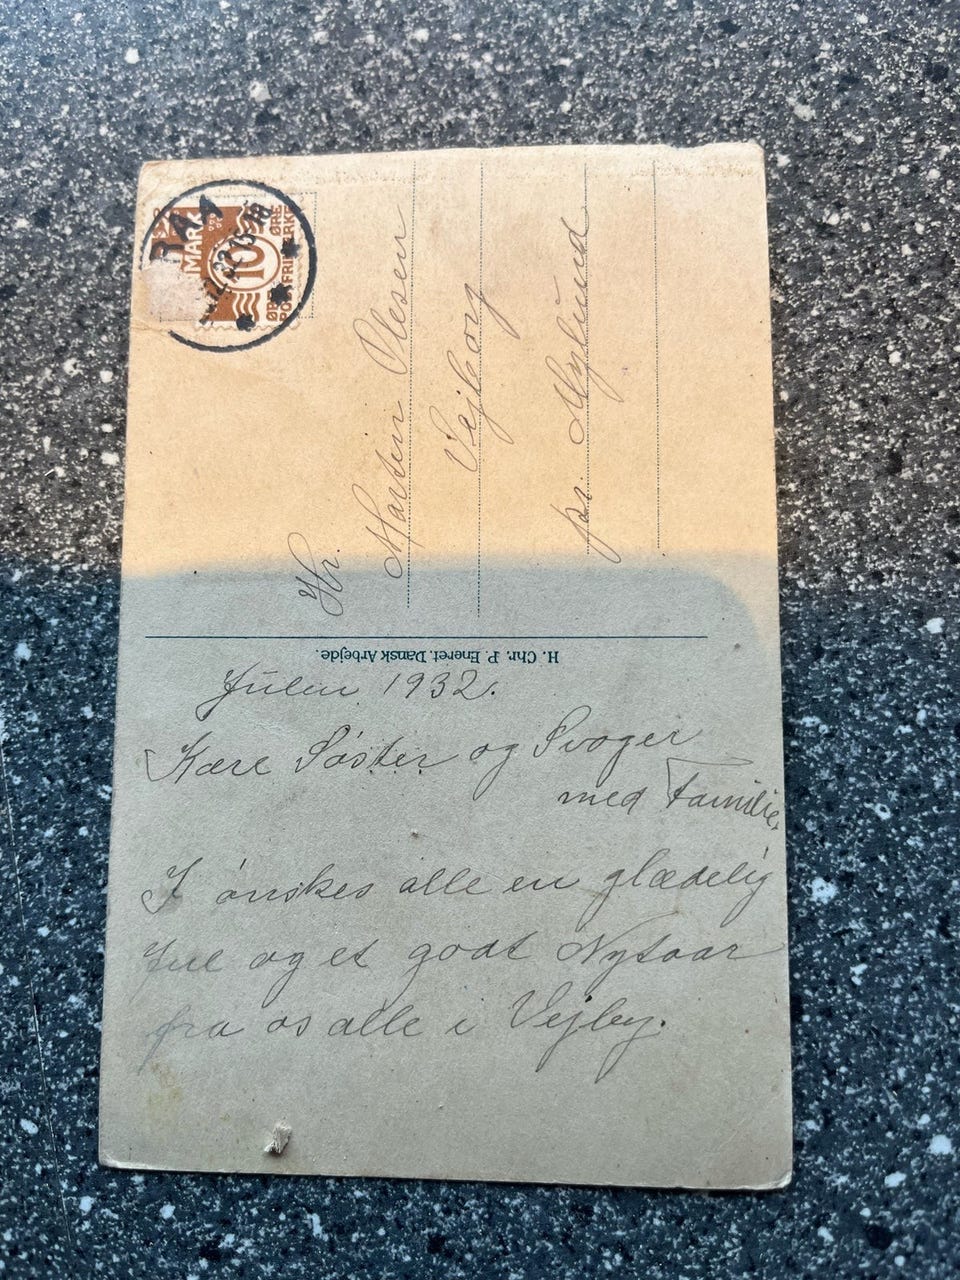 DANMARK
10
ØRE
POSTFRIMÆRKE
Hr.
Martin Olesen
Vejborg
pr. Mylund
H. Chr. P. Eneret. Dansk Arbejde.
Julen 1932.
Kære Søster og Svoger
med Familie.
I ønskes alle en glædelig
Jul og et godt Nytaar
fra os alle i Vejby.